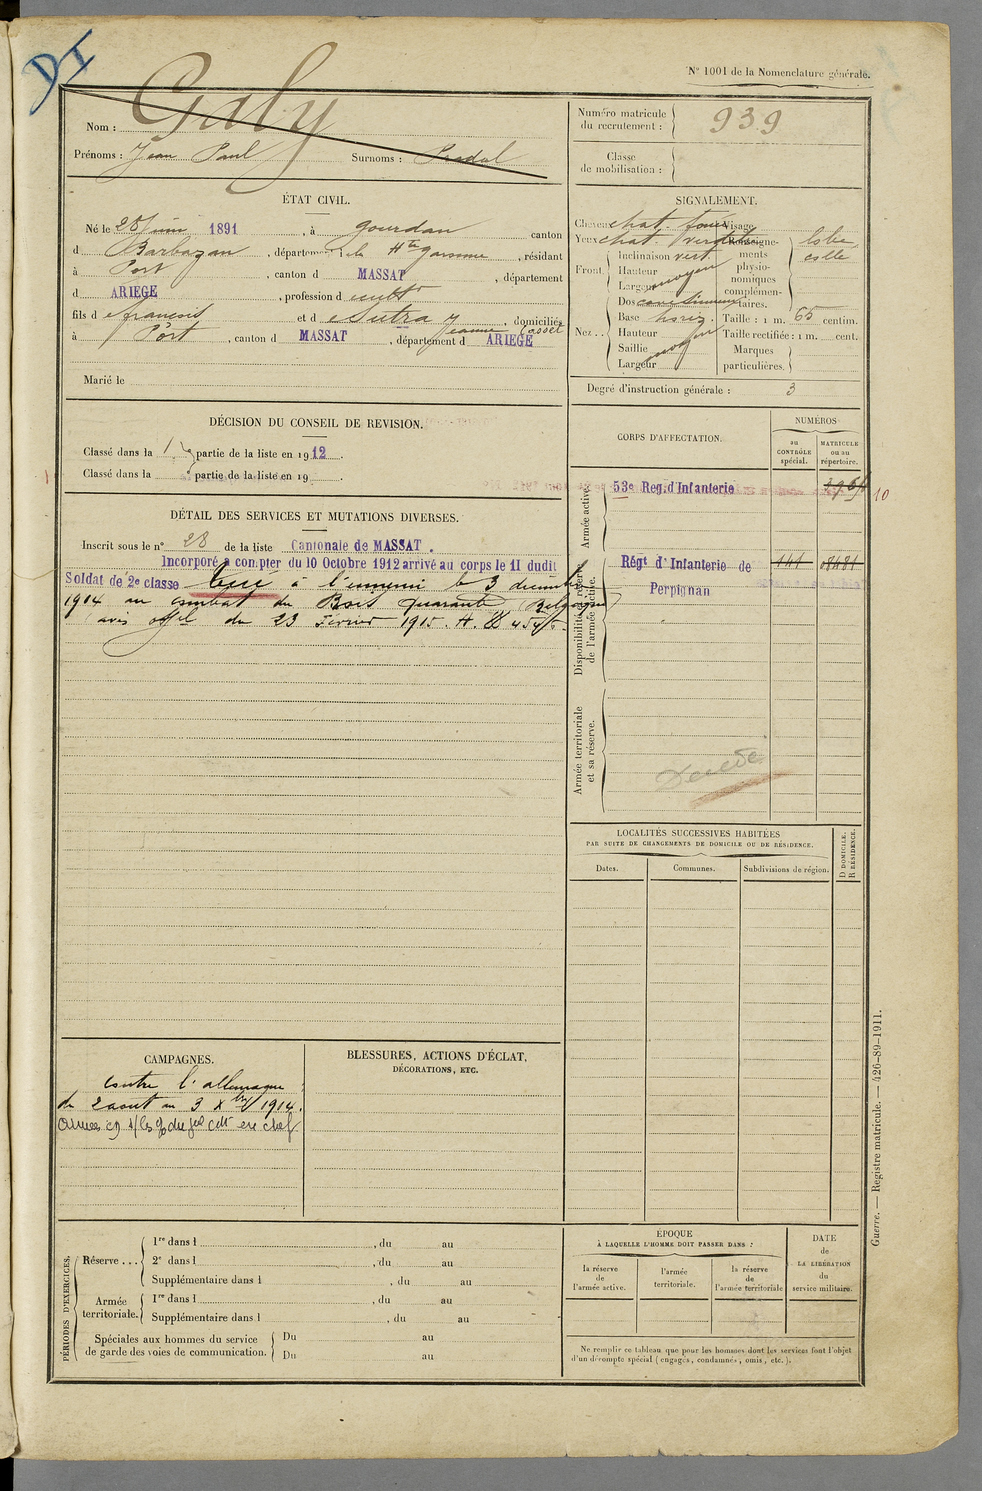 DI
N° 1001 de la Nomenclature générale.
Nom : Galy
Prénoms : Jean Paul Surnoms : Pradal
Numéro matricule
du recrutement : 939
Classe
de mobilisation :
ÉTAT CIVIL.
Né le 28 juin 1891, à Gourdan canton
d Barbazan, département de la Hte Garonne, résidant
à Port, canton d MASSAT, département
d ARIEGE, profession d cultr
fils d e françois et d e Sutra Jeanne, domiciliés
à Port, canton d MASSAT, département d ARIEGE
Marié le
SIGNALEMENT.
Cheveux chat. foncé
Yeux chat verdâtre
Front. Inclinaison vert
Hauteur
Largeur moyen
Nez.. Dos
Base horiz.
Hauteur
Saillie moyen
Largeur
Visage
Renseignements
physionomiques
complémentaires. lobe
colle
Taille : 1 m. 65 centim.
Taille rectifiée : 1 m. cent.
Marques
particulières.
Degré d'instruction générale : 3
DÉCISION DU CONSEIL DE REVISION.
Classé dans la 1 partie de la liste en 1912.
Classé dans la partie de la liste en 19
DÉTAIL DES SERVICES ET MUTATIONS DIVERSES.
Inscrit sous le n° 28 de la liste Cantonale de MASSAT.
Incorporé à compter du 10 Octobre 1912 arrivé au corps le 11 dudit
Soldat de 2e classe Tué à l'ennemi le 3 décembre
1914 au combat du Bois quarante (Belgique)
(avis offel du 23 Fevrier 1915.
CORPS D'AFFECTATION.
NUMÉROS
au
CONTRÔLE
spécial.
MATRICULE
ou au
répertoire.
Armée active.
53e Reg. d'Infanterie
10
Disponibilité et réserve
de l'armée active.
Régt d'Infanterie de
Perpignan
141 08481
Armée territoriale
et sa réserve.
Décédé
LOCALITÉS SUCCESSIVES HABITÉES
PAR SUITE DE CHANGEMENTS DE DOMICILE OU DE RÉSIDENCE.
D DOMICILE.
R RÉSIDENCE.
Dates. Communes. Subdivisions de région.
CAMPAGNES.
contre l'allemagne
du 2 aout au 3 Xbre 1914.
BLESSURES, ACTIONS D'ÉCLAT,
DÉCORATIONS, ETC.
PÉRIODES D'EXERCICES.
Réserve... 1re dans l , du au
2e dans l , du au
Supplémentaire dans l , du au
Armée
territoriale. 1re dans l , du au
Supplémentaire dans l , du au
Spéciales aux hommes du service
de garde des voies de communication. Du au
Du au
ÉPOQUE
À LAQUELLE L'HOMME DOIT PASSER DANS :
la réserve
de
l'armée active.
l'armée
territoriale.
la réserve
de
l'armée territoriale
DATE
de
LA LIBÉRATION
du
service militaire.
Ne remplir ce tableau que pour les hommes dont les services font l'objet
d'un décompte spécial (engagés, condamnés, omis, etc.).
Guerre. — Registre matricule. — 426-89-1911.